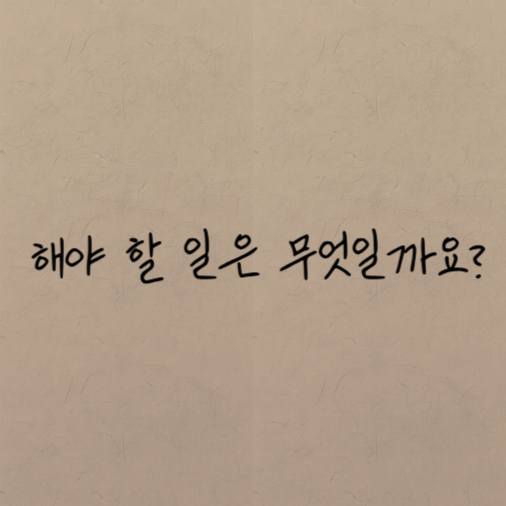 해야 할 일은 무엇일까요?